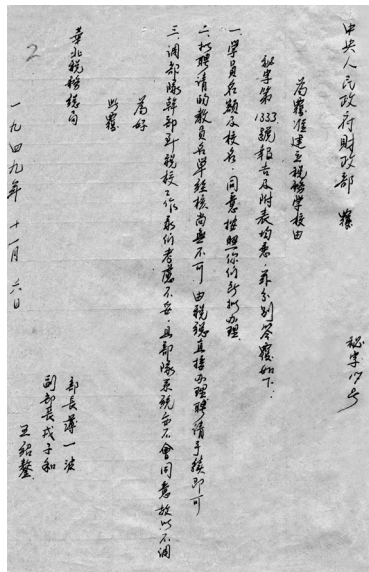 中央人民政府財政部 覆
秘字17号
為覆准建立税務学校由
秘字第1333號報告及附表均悉，茲分别答覆如下：
一、學員名額及校名，同意按照你们所拟办理。
二、拟聘请的教員名单經核尚無不可，由税總直接办理聘请手续即可
三、调部隊幹部到税校工作，我们考慮不妥，且部隊系統亦不會同意，故以不调
為好
此覆
華北税務總局
部長薄一波
副部長戎子和
王绍鏊
一九四九年十一月六日
2